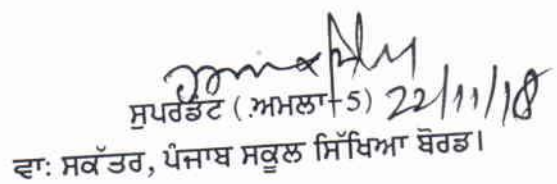 ਸੁਪਰਡੰਟ (ਅਮਲਾ-5) 22/11/18
ਵਾ: ਸਕੱਤਰ, ਪੰਜਾਬ ਸਕੂਲ ਸਿੱਖਿਆ ਬੋਰਡ।